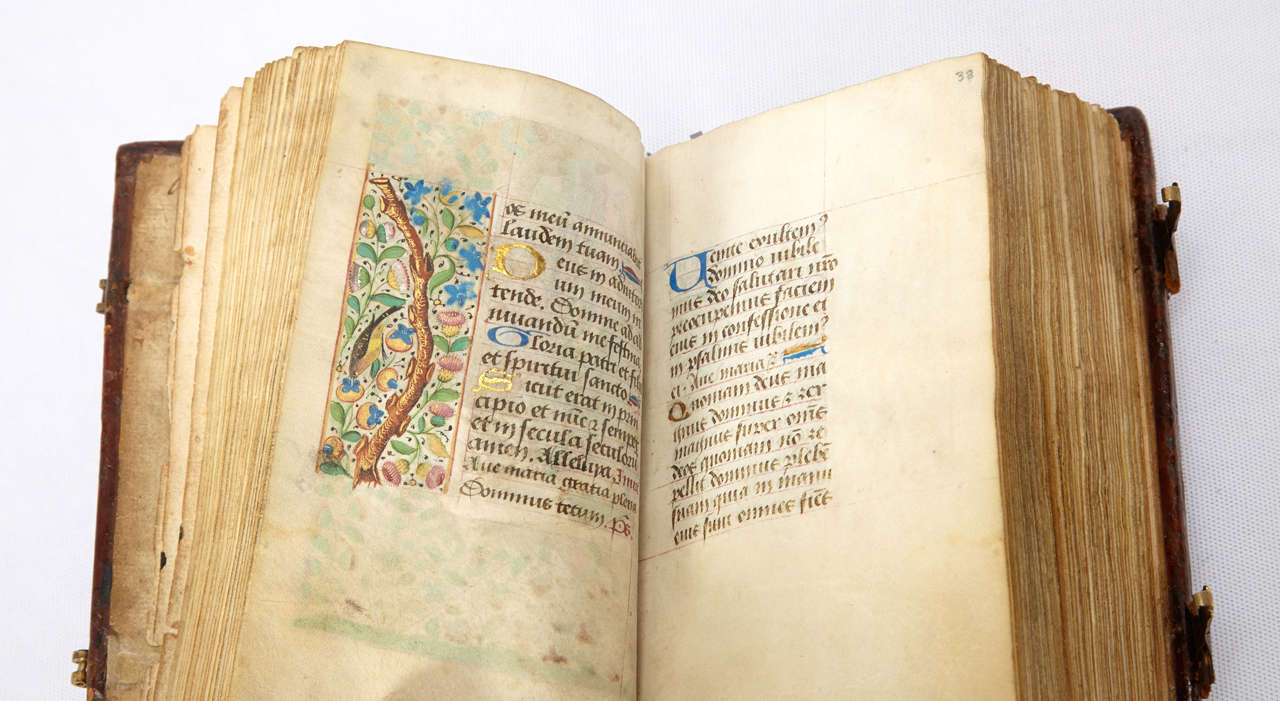 os meũ annunciabit
laudem tuam
Deus in adiutori
um meum in
tende. Domine ad ad
iuuandũ me festina
Gloria patri et filio
et spiritui sancto
Sicut erat in prin
cipio et nũc ⁊ semper
et in secula seculorũ
amen. Alleluya. Inuit
Aue maria gratia plena
Dominus tecum. p̃s.
38
Uenite exultem⁹
domino iubile
mus deo salutari nr̃o
preocupemus faciem
eius in confessione et
in psalmis iubilem⁹
ei. Aue maria ⁊
Quoniam deus ma
gnus dominus ⁊ rex
magnus super om̃s
deos quoniam nõ re
pellit dominus plebẽ
suam quia in manu
eius sunt omnes fines